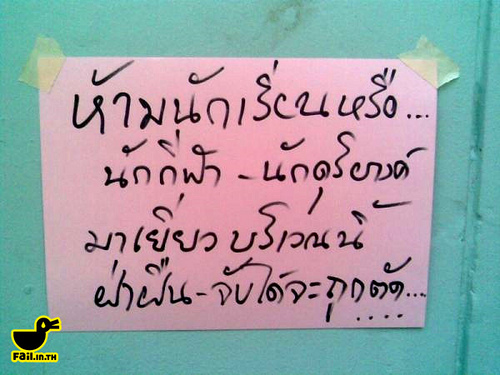 ห้ามนักเรียนหรือ...
นักกีฬา - นักดุริยางค์
มาเยี่ยวบริเวณนี้
ฝ่าฝืน - จับได้จะถูกตัด....
....
Fail.in.TH